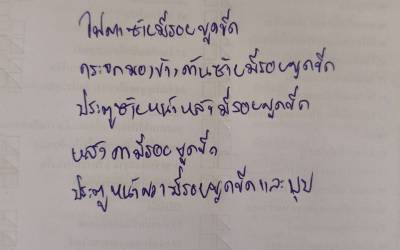 ไฟตาซ้ายมีรอยขูดขีด
กระจกมองข้างด้านซ้ายมีรอยขูดขีด
ประตูซ้ายหน้าหลังมีรอยขูดขีด
หลังคามีรอยขูดขีด
ประตูหน้าขวามีรอยขูดขีดและบุบ